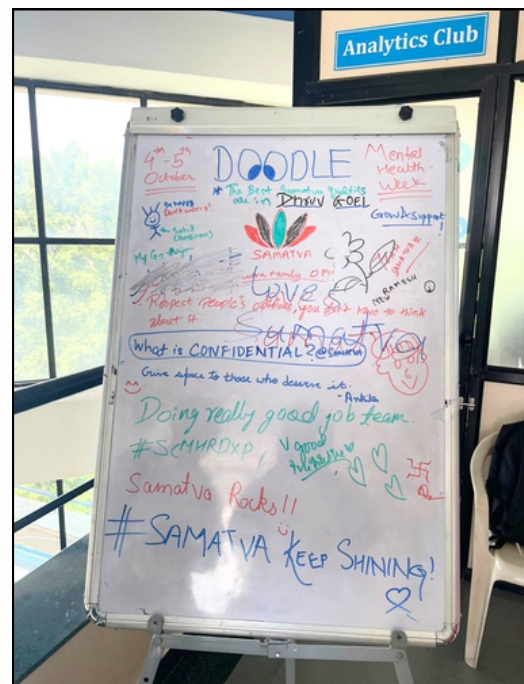 Analytics Club
4th-5th October
DOODLE
Mental Health Week
* The Best Samatva qualities are in DHRUV GOEL
Be Happy
Don't worry!
Grow & Support!
SAMATVA
Family OP!!
Loves
Samatva
Respect People's opinions, you don't have to think
about it.
What is CONFIDENTIAL? @Samatva
Give space to those who deserve it.
- Ankita
Doing really good job team.
#SCMHRDXP
V good
initiative
Samatva Rocks!!
#SAMATVA KEEP SHINING!